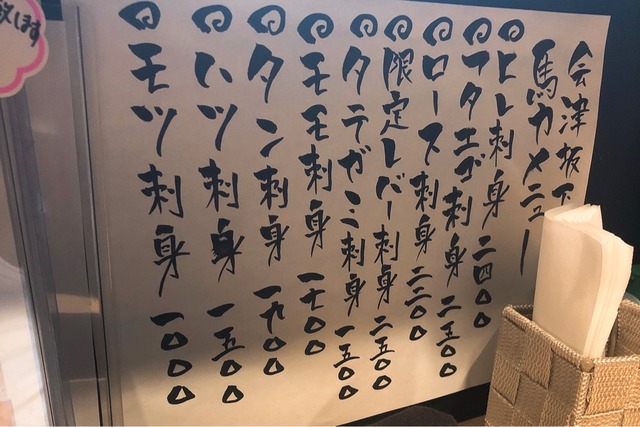 会津坂下
馬力メニュー
ヒレ刺身 二四〇〇
フタエゴ刺身 二五〇〇
ロース刺身 二二〇〇
限定レバー刺身 二五〇〇
タテガミ刺身 一五〇〇
モモ刺身 一七〇〇
タン刺身 一九〇〇
ハツ刺身 一五〇〇
モツ刺身 一〇〇〇
致します